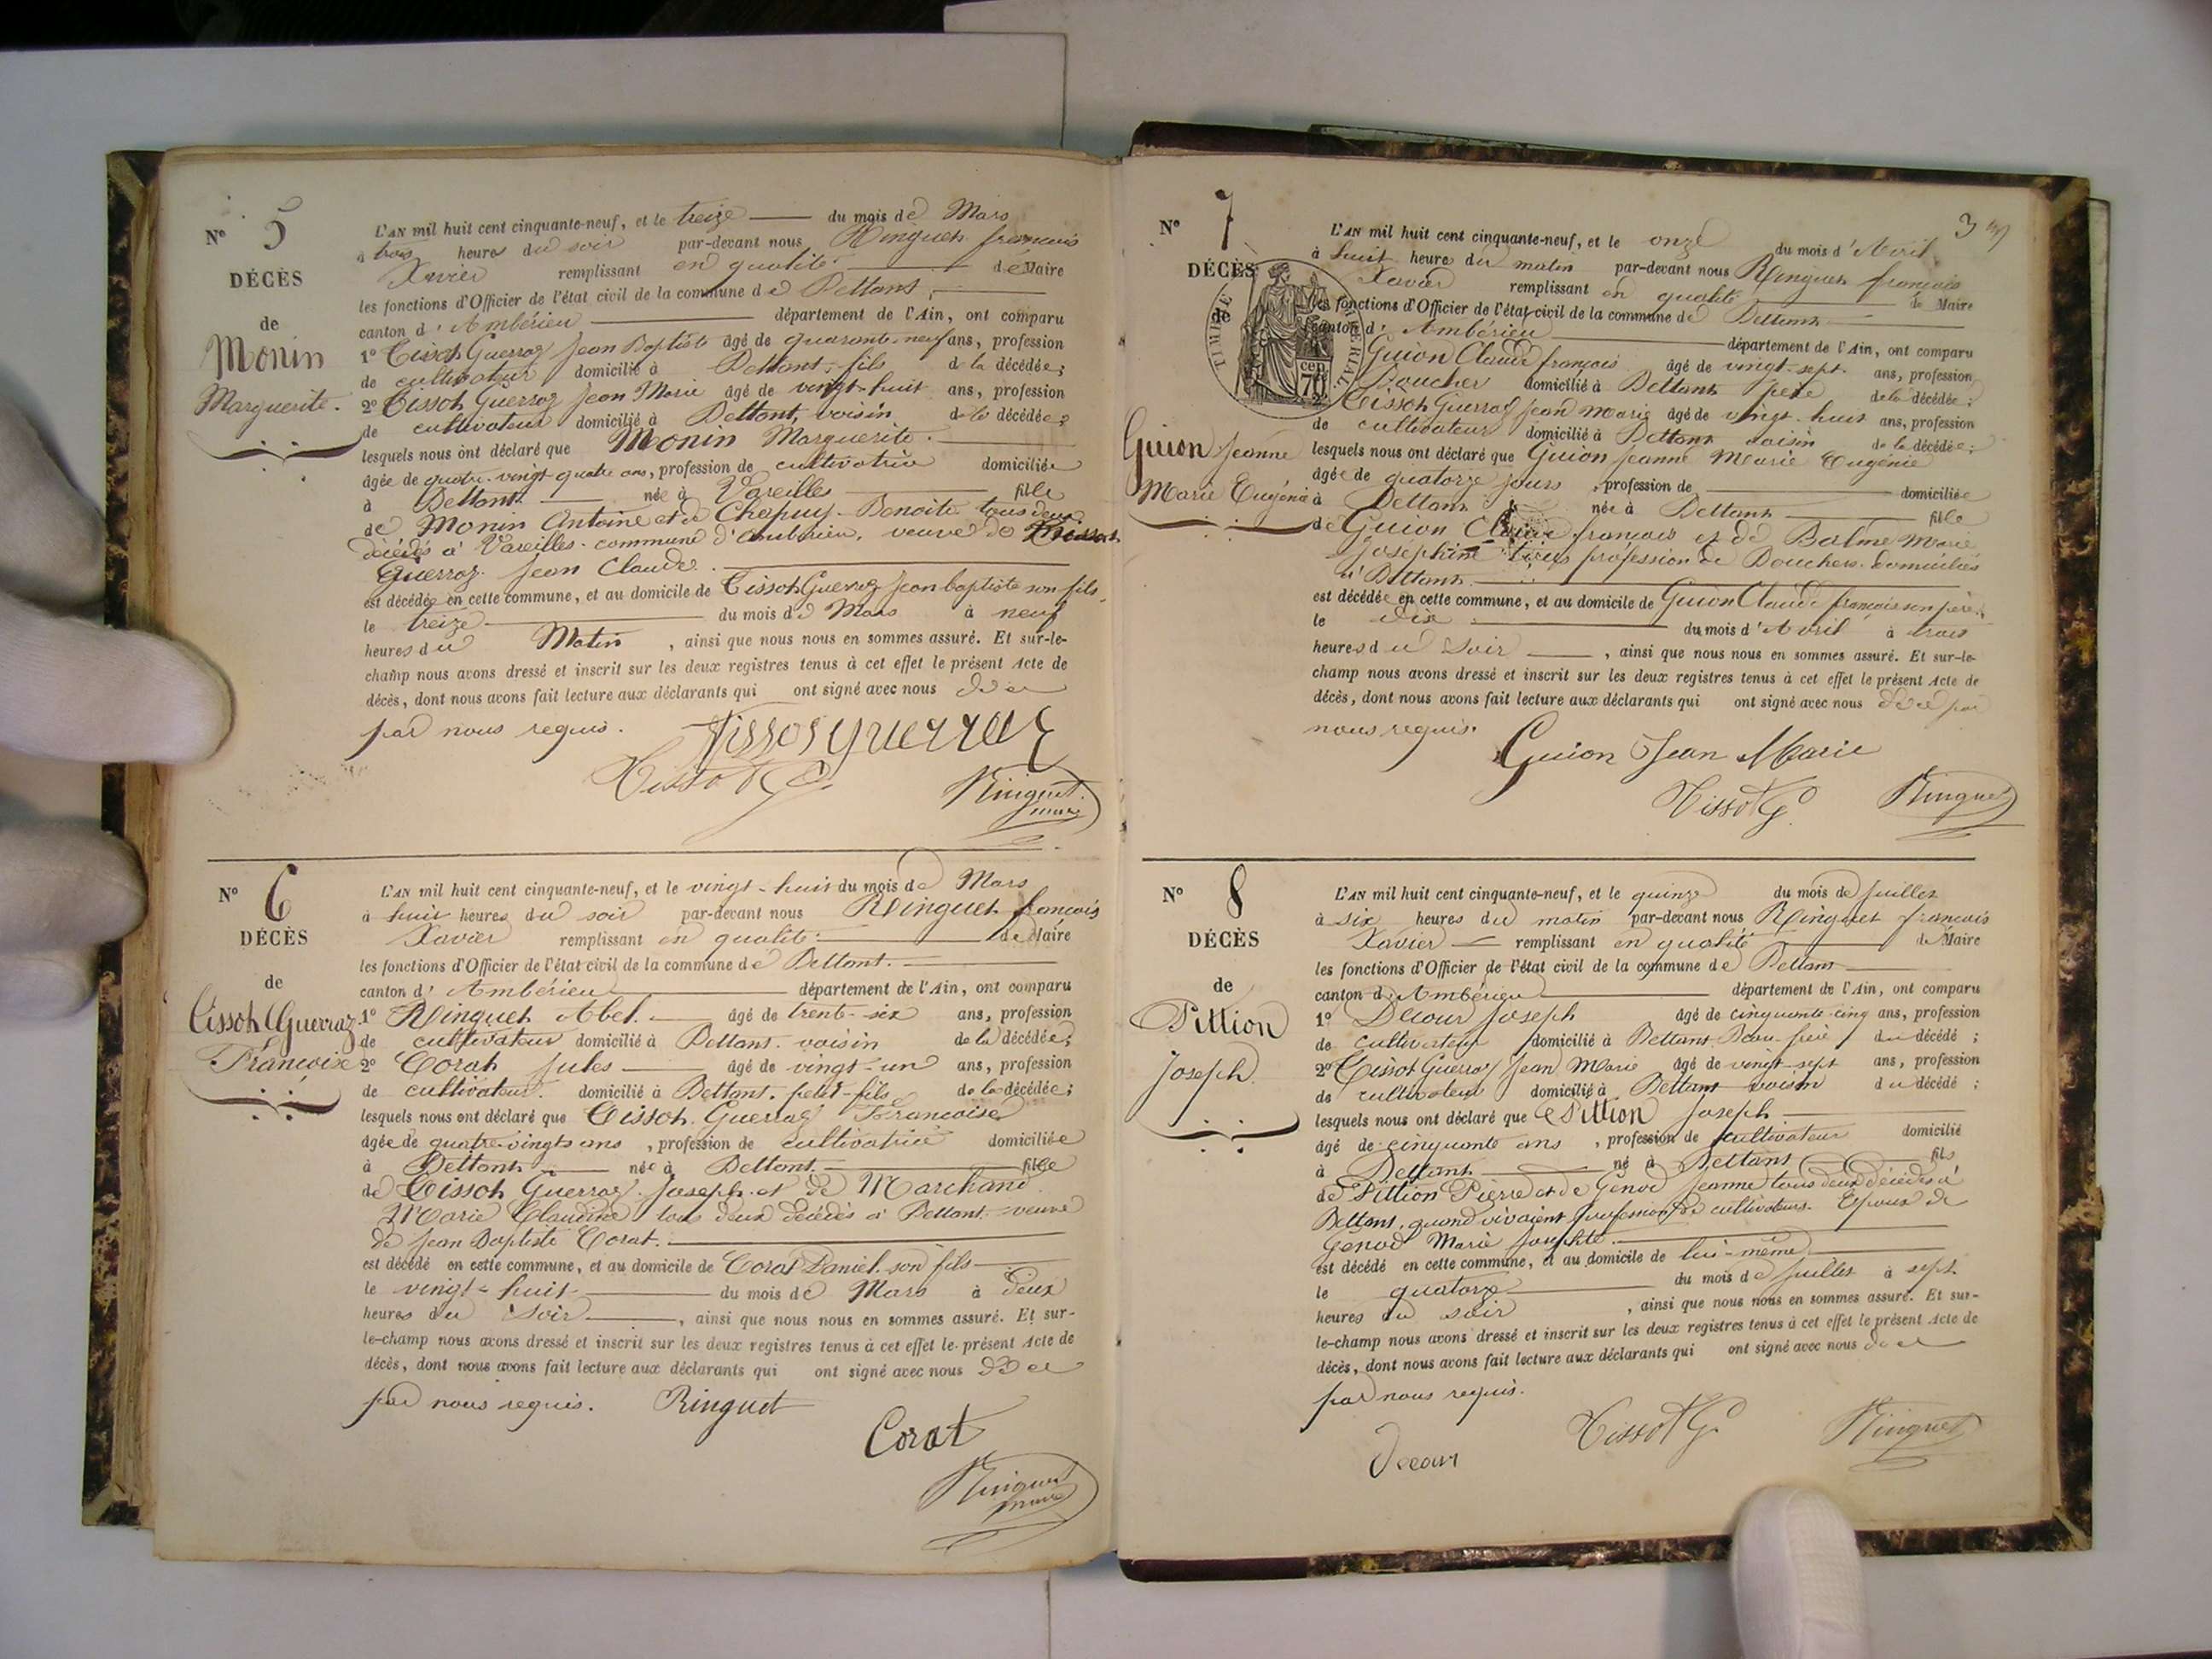 N° 5
DÉCÈS
de
Monin
Marguerite.
L'AN mil huit cent cinquante-neuf, et le treize du mois de Mars
à trois heures du soir par-devant nous Ringuet françois
Xavier remplissant en qualité de Maire
les fonctions d'Officier de l'état civil de la commune de Bettant,
canton d'Ambérieu département de l'Ain, ont comparu
1° Tissot Guerraz Jean Baptiste âgé de quarante-neuf ans, profession
de cultivateur domicilié à Bettant, fils de la décédée;
2° Tissot Guerraz Jean Marie âgé de vingt-huit ans, profession
de cultivateur domicilié à Bettant, voisin de la décédée;
lesquels nous ont déclaré que Monin Marguerite.
âgée de quatre-vingt-quatre ans, profession de cultivatrice domiciliée
à Bettant née à Vareilles fille
de Monin Antoine et de Chapuy Benoite tous deux
décédés à Vareilles commune d'Ambérieu, veuve de Tissot
Guerraz Jean Claude.
est décédée en cette commune, et au domicile de Tissot Guerraz Jean baptiste son fils,
le treize du mois de Mars à neuf
heures du Matin, ainsi que nous nous en sommes assuré. Et sur-le-
champ nous avons dressé et inscrit sur les deux registres tenus à cet effet le présent Acte de
décès, dont nous avons fait lecture aux déclarants qui ont signé avec nous de ce
par nous requis. Tissot guerraz
Tissot G. Ringuet
maire
N° 6
DÉCÈS
de
Tissot Guerraz
Françoise
L'AN mil huit cent cinquante-neuf, et le vingt-huit du mois de Mars
à huit heures du soir par-devant nous Ringuet françois
Xavier remplissant en qualité de Maire
les fonctions d'Officier de l'état civil de la commune de Bettant.
canton d'Ambérieu département de l'Ain, ont comparu
1° Ringuet Abel. âgé de trente-six ans, profession
de cultivateur domicilié à Bettant. voisin de la décédée;
2° Corat Jules âgé de vingt-un ans, profession
de cultivateur. domicilié à Bettant. petit-fils de la décédée;
lesquels nous ont déclaré que Tissot Guerraz Françoise
âgée de quatre-vingts ans, profession de cultivatrice domiciliée
à Bettant née à Bettant. fille
de Tissot Guerraz Joseph et de Marchand
Marie Claudine tous deux décédés à Bettant. veuve
de Jean Baptiste Corat.
est décédé en cette commune, et au domicile de Corat Daniel son fils
le vingt-huit du mois de Mars à deux
heures du soir, ainsi que nous nous en sommes assuré. Et sur-
le-champ nous avons dressé et inscrit sur les deux registres tenus à cet effet le présent Acte de
décès, dont nous avons fait lecture aux déclarants qui ont signé avec nous de ce
par nous requis. Ringuet
Corat
Ringuet
maire
N° 7
DÉCÈS
de
Guion Jeanne
Marie Eugénie
TIMBRE IMPÉRIAL
70 cen
3
L'AN mil huit cent cinquante-neuf, et le onze du mois d'Avril
à huit heure du matin par-devant nous Ringuet françois
Xavier remplissant en qualité de Maire
les fonctions d'Officier de l'état civil de la commune de Bettant
canton d'Ambérieu département de l'Ain, ont comparu
Guion Claude françois âgé de vingt-sept ans, profession
Boucher domicilié à Bettant père de la décédée;
2° Tissot Guerraz Jean Marie âgé de vingt-huit ans, profession
de cultivateur domicilié à Bettant voisin de la décédée;
lesquels nous ont déclaré que Guion Jeanne Marie Eugénie
âgée de quatorze jours, profession de domiciliée
à Bettant née à Bettant fille
de Guion Claude françois et de Balme Marie
Josephine tous profession de Bouchers domiciliés
à Bettant.
est décédée en cette commune, et au domicile de Guion Claude françois son père.
le dix du mois d'Avril à trois
heures du soir, ainsi que nous nous en sommes assuré. Et sur-le-
champ nous avons dressé et inscrit sur les deux registres tenus à cet effet le présent Acte de
décès, dont nous avons fait lecture aux déclarants qui ont signé avec nous de ce par
nous requis.
Guion Jean Marie
Tissot G. Ringuet
N° 8
DÉCÈS
de
Pittion
Joseph.
L'AN mil huit cent cinquante-neuf, et le quinze du mois de Juillet
à six heures du matin par-devant nous Ringuet françois
Xavier remplissant en qualité de Maire
les fonctions d'Officier de l'état civil de la commune de Bettant
canton d'Ambérieu département de l'Ain, ont comparu
1° Decour Joseph âgé de cinquante-cinq ans, profession
de cultivateur domicilié à Bettant Beau-frère du décédé;
2° Tissot Guerraz Jean Marie âgé de vingt-sept ans, profession
de cultivateur domicilié à Bettant voisin du décédé;
lesquels nous ont déclaré que Pittion Joseph
âgé de cinquante ans, profession de cultivateur domicilié
à Bettant né à Bettant fils
de Pittion Pierre et de Genod Jeanne tous deux décédés à
Bettant, quand vivaient profession de cultivateurs. Epoux de
Genod Marie Josephte.
est décédé en cette commune, et au domicile de lui-même
le quatorze du mois de Juillet à sept
heures du soir, ainsi que nous nous en sommes assuré. Et sur-
le-champ nous avons dressé et inscrit sur les deux registres tenus à cet effet le présent Acte de
décès, dont nous avons fait lecture aux déclarants qui ont signé avec nous de ce
par nous requis.
Decour Tissot G. Ringuet